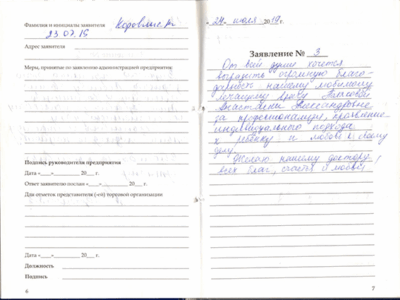 Фамилия и инициалы заявителя
23.07.19
Адрес заявителя
Меры, принятые по заявлению администрацией предприятия:
Подпись руководителя предприятия
Дата «___» ________ 20___ г.
Ответ заявителю послан «___» ________ 20___ г.
Для отметок представителя (-ей) торговой организации
Дата «___» ________ 20___ г.
Должность
Подпись
6
«24» июля 2019г.
Заявление № 3
От всей души хочется
выразить огромную благо-
дарность нашему любимому
лечащему врачу
Анастасии Александровне
за профессионализм, проявление
индивидуального подхода
к ребенку и любовь к своему
делу.
Желаю нашему доктору
всех благ, счастья и любви!
7